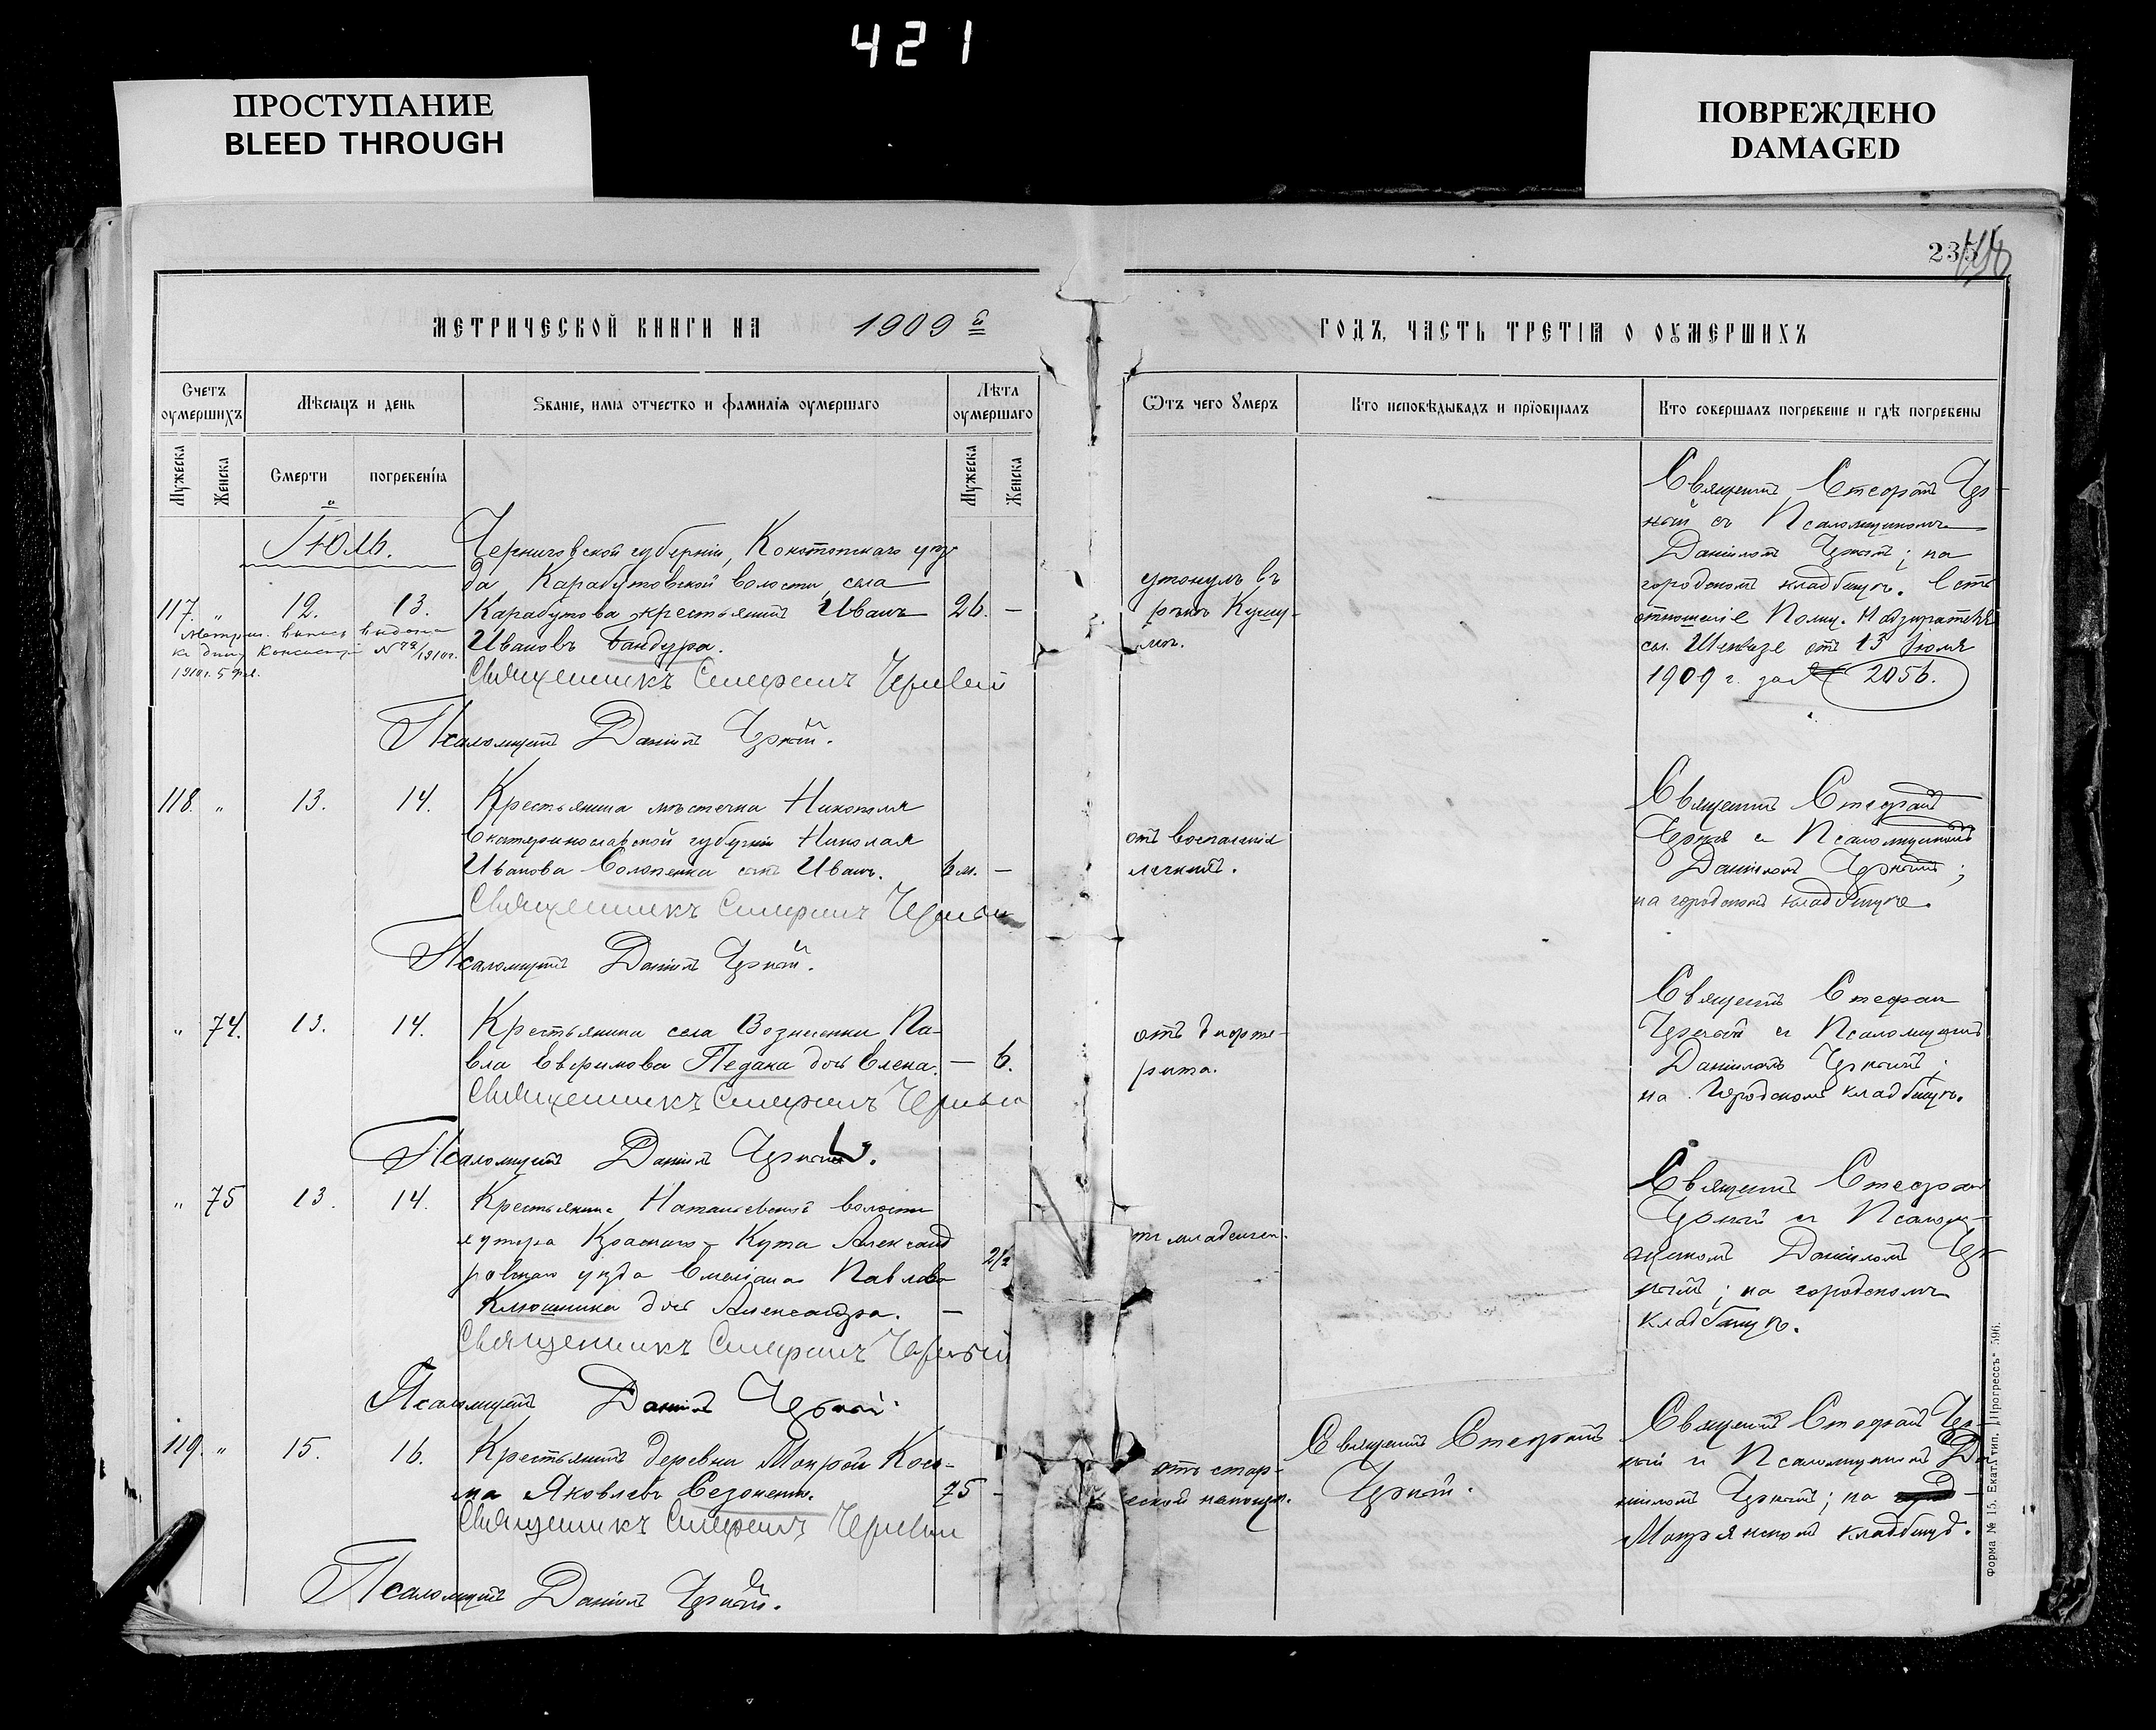 421
ПРОСТУПАНИЕ
BLEED THROUGH
ПОВРЕЖДЕНО
DAMAGED
235
МЕТРИЧЕСКОЙ КНИГИ НА 1909 й
ГОДЪ, ЧАСТЬ ТРЕТІѦ О ОУМЕРШИХЪ
Счетъ оумершихъ
Мѣсяцъ и день
Званіе, имя отчество и фамилія оумершаго
Лѣта оумершаго
Ѿтъ чего Умеръ
Кто исповѣдывалъ и пріобщалъ
Кто совершалъ погребеніе и гдѣ погребены
Мужеска
Женска
Смерти
погребенія
Мужеска
Женска
Іюль.
Черниговской губерніи, Конотопскаго уѣз-
да Карабутовской волости, села
117. " 12. 13. Карабутова крестьянинъ Иванъ 26. —
Ивановъ Бандура.
Метрич. выпись выдана
Консисторіи
1910г.
Священникъ Стефанъ Черный
Псаломщикъ Даніилъ Чрный.
утонулъ въ
рѣкѣ Кушу-
мѣ.
Священникъ Стефанъ Чр-
ный съ Псаломщикомъ
Даніиломъ Чрнымъ; на
городскомъ кладбищѣ. Есть
отношеніе Полиц. Надзирателя
отъ 13 Іюля
1909 г. за № 2056.
118. " 13. 14. Крестьянина мѣстечка Никополя
Екатеринославской губерніи Николая
Иванова Солопенка сынъ Иванъ. 6 м. —
Священникъ Стефанъ Черный
Псаломщикъ Даніилъ Чрный.
отъ воспаленія
легкихъ.
Священникъ Стефанъ
Чрный и Псаломщикомъ
Даніиломъ Чрнымъ;
на городскомъ кладбищѣ.
" 74. 13. 14. Крестьянина села Вознесенки Па-
вла Евфимова Педака дочь Елена. — 6.
Священникъ Стефанъ Черный
Псаломщикъ Даніилъ Чрный.
отъ дифте-
рита.
Священникъ Стефанъ
Чрный и Псаломщикъ
Даніиломъ Чрнымъ;
на Городскомъ кладбищѣ.
" 75 13. 14. Крестьянина Натальевской волости
хутора Краснаго-Кута Александ
ровскаго уѣзда Емеліана Павлова
Клюшника дочь Александра. — 2½
Священникъ Стефанъ Черный
Псаломщикъ Даніилъ Чрный.
младенч.
Священникъ Стефанъ
Чрный и Псалом-
щикомъ Даніиломъ Чр-
нымъ; на городскомъ
кладбищѣ.
119. " 15. 16. Крестьянинъ деревни Мокрой Кось-
ма Яковлевъ Сезоненко. 75 -
Священникъ Стефанъ Черный
Псаломщикъ Даніилъ Чрный.
отъ стар-
ческой немощи.
Священникъ Стефанъ
Чрный.
Священникъ Стефанъ Чр-
ный и Псаломщикомъ Да
ніиломъ Чрнымъ; на
Мокрянскомъ кладбищѣ.
Форма № 15. Екат. тип. „Прогрессъ“ 596.